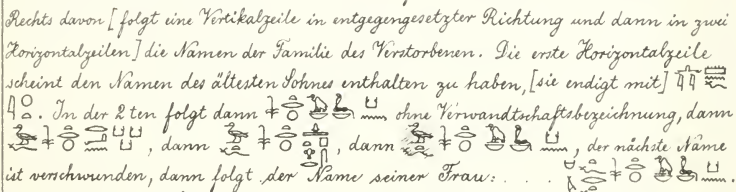 Rechts davon [folgt eine Vertikalzeile in entgegengesetzter Richtung und dann in zwei
Horizontalzeilen] die Namen der Familie des Verstorbenen. Die erste Horizontalzeile
scheint den Namen des ältesten Sohnes enthalten zu haben, [sie endigt mit]
. In der 2ten folgt dann ohne Verwandtschaftsbezeichnung, dann
, dann , dann , der nächste Name
ist verschwunden, dann folgt der Name seiner Frau: . . . .